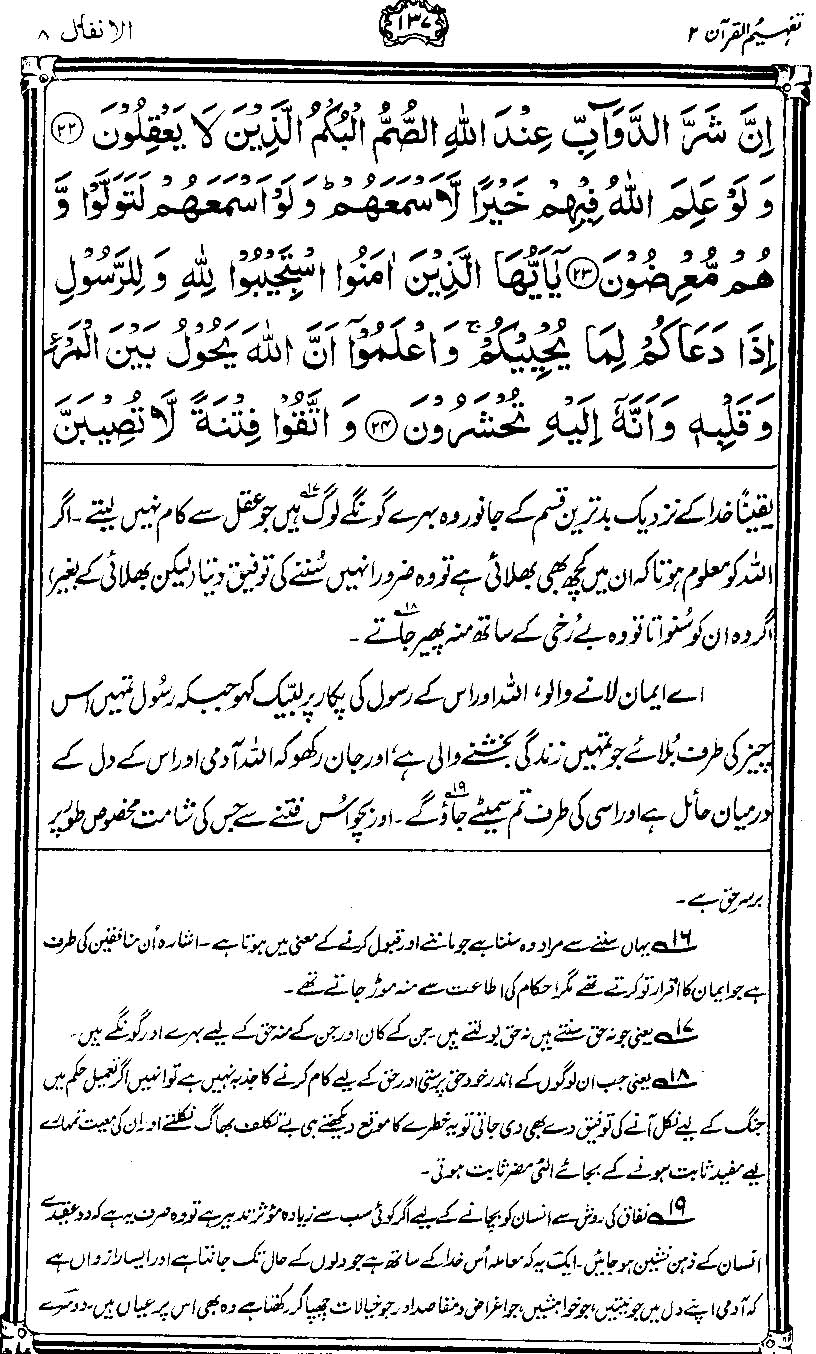 تفہیم القرآن ۲
۱۳۷
الانفال ۸
اِنَّ شَرَّ الدَّوَآبِّ عِنْدَ اللّٰهِ الصُّمُّ الْبُكْمُ الَّذِيْنَ لَا يَعْقِلُوْنَ ﴿۲۲﴾
وَ لَوْ عَلِمَ اللّٰهُ فِيْهِمْ خَيْرًا لَّاَسْمَعَهُمْ ؕ وَ لَوْ اَسْمَعَهُمْ لَتَوَلَّوْا وَّ
هُمْ مُّعْرِضُوْنَ ﴿۲۳﴾ يٰۤاَيُّهَا الَّذِيْنَ اٰمَنُوا اسْتَجِيْبُوْا لِلّٰهِ وَ لِلرَّسُوْلِ
اِذَا دَعَاكُمْ لِمَا يُحْيِيْكُمْ ۚ وَ اعْلَمُوْۤا اَنَّ اللّٰهَ يَحُوْلُ بَيْنَ الْمَرْءِ
وَ قَلْبِهٖ وَ اَنَّهٗۤ اِلَيْهِ تُحْشَرُوْنَ ﴿۲۴﴾ وَ اتَّقُوْا فِتْنَةً لَّا تُصِيْبَنَّ
یقیناً خدا کے نزدیک بدترین قسم کے جانور وہ بہرے گونگے لوگ۱۷ ہیں جو عقل سے کام نہیں لیتے۔ اگر
اللہ کو معلوم ہوتا کہ ان میں کچھ بھی بھلائی ہے تو وہ ضرور انہیں سُننے کی توفیق دیتا (لیکن بھلائی کے بغیر)
اگر وہ ان کو سُنواتا تو وہ بے رُخی کے ساتھ منہ پھیر جاتے۱۸۔
اے ایمان لانے والو، اللہ اور اس کے رسول کی پکار پر لبّیک کہو جبکہ رسُول تمہیں اس
چیز کی طرف بُلائے جو تمہیں زندگی بخشنے والی ہے، اور جان رکھو کہ اللہ آدمی اور اس کے دل کے
درمیان حائل ہے اور اسی کی طرف تم سمیٹے جاؤ گے۱۹۔ اور بچو اُس فتنے سے جس کی شامت مخصوص طور پر
برسرِ حق ہے۔
۱۶ یہاں سننے سے مراد وہ سننا ہے جو ماننے اور قبول کرنے کے معنی میں ہوتا ہے۔ اشارہ اُن منافقین کی طرف
ہے جو ایمان کا اقرار تو کرتے تھے مگر احکام کی اطاعت سے منہ موڑ جاتے تھے۔
۱۷ یعنی جو نہ حق سنتے ہیں نہ حق بولتے ہیں۔ جن کے کان اور جن کے منہ حق کے لیے بہرے اور گونگے ہیں۔
۱۸ یعنی جب ان لوگوں کے اندر خود حق پرستی اور حق کے لیے کام کرنے کا جذبہ نہیں ہے تو انہیں اگر تعمیل حکم میں
جنگ کے لیے نکل آنے کی توفیق دے بھی دی جاتی تو یہ خطرے کا موقع دیکھتے ہی بے تکلف بھاگ نکلتے اور ان کی معیت تمہارے
لیے مفید ثابت ہونے کے بجائے الٹی مضر ثابت ہوتی۔
۱۹ نفاق کی روش سے انسان کو بچانے کے لیے اگر کوئی سب سے زیادہ مؤثر تدبیر ہے تو وہ صرف یہ ہے کہ دو عقیدے
انسان کے ذہن نشین ہو جائیں۔ ایک یہ کہ معاملہ اُس خدا کے ساتھ ہے جو دلوں کے حال تک جانتا ہے اور ایسا رازداں ہے
کہ آدمی اپنے دل میں جو نیتیں، جو خواہشیں، جو اغراض و مقاصد اور جو خیالات چھپا کر رکھتا ہے وہ بھی اس پر عیاں ہیں۔ دوسرے